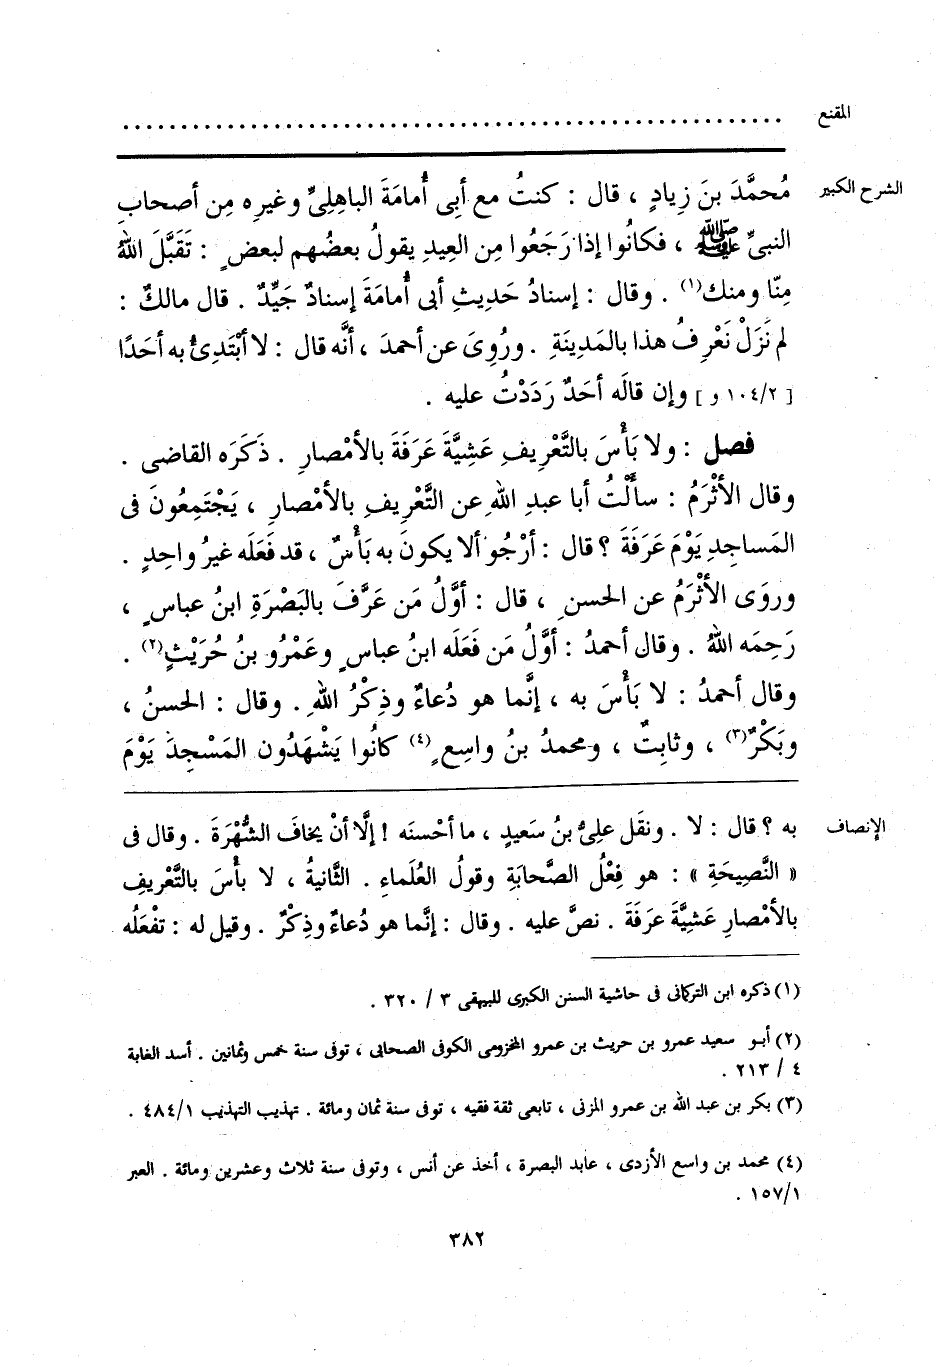 المقنع ................................................
الشرح الكبير مُحمَّدَ بنَ زِيادٍ ، قال : كنتُ مع أبِى أُمامَةَ الباهِلِىِّ وغيرِه مِن أصحابِ
النبىِّ ﷺ ، فكانُوا إذا رَجَعُوا مِن العِيدِ يقولُ بعضُهم لبعضٍ : تَقَبَّلَ اللهُ
مِنّا ومنك(١) . وقال : إسنادُ حَدِيثِ أبى أُمامَةَ إسنادٌ جَيِّدٌ . قال مالكٌ :
لم نَزَلْ نَعْرِفُ هذا بالمَدِينَةِ . ورُوِىَ عن أحمدَ ، أنَّه قال : لا أبْتَدِئُ به أحَدًا
[ ١٠٤/٢ و ] وإن قالَه أحَدٌ رَدَدْتُ عليه .
فصل : ولا بَأْسَ بالتَّعْرِيفِ عَشِيَّةَ عَرَفَةَ بالأمْصارِ . ذَكَرَه القاضى .
وقال الأثْرَمُ : سألْتُ أبا عبدِ اللهِ عن التَّعْرِيفِ بالأمْصارِ ، يَجْتَمِعُونَ فى
المَساجِدِ يَوْمَ عَرَفَةَ ؟ قال : أرْجُو ألا يكونَ به بَأْسٌ ، قد فَعَلَه غيرُ واحِدٍ .
وروَى الأثْرَمُ عن الحسنِ ، قال : أوَّلُ مَن عَرَّفَ بالبَصْرَةِ ابنُ عباسٍ ،
رَحِمَه اللهُ . وقال أحمدُ : أوَّلُ مَن فَعَلَه ابنُ عباسٍ وعَمْرُو بنُ حُرَيْثٍ(٢) .
وقال أحمدُ : لا بَأْسَ به ، إنَّما هو دُعاءٌ وذِكْرُ اللهِ . وقال : الحسنُ ،
وبَكْرٌ(٣) ، وثابِتٌ ، ومحمدُ بنُ واسِعٍ(٤) كانُوا يَشْهَدُون المَسْجِدَ يَوْمَ
الإنصاف به ؟ قال : لا . ونقَل علِىُّ بنُ سَعيدٍ ، ما أحْسنَه ! إلَّا أنْ يخافَ الشُّهْرَةَ . وقال فى
« النَّصِيحَةِ » : هو فِعْلُ الصَّحابَةِ وقولُ العُلَماءِ . الثَّانيةُ ، لا بأْسَ بالتَّعْريفِ
بالأمْصارِ عَشِيَّةَ عرَفَةَ . نصَّ عليه . وقال : إنَّما هو دُعاءٌ وذِكْرٌ . وقيل له : تفْعَلُه
(١) ذكره ابن التركمانى فى حاشية السنن الكبرى للبيهقى ٣ / ٣٢٠ .
(٢) أبو سعيد عمرو بن حريث بن عمرو المخزومى الكوفى الصحابى ، توفى سنة خمس وثمانين . أسد الغابة
٤ / ٢١٣ .
(٣) بكر بن عبد الله بن عمرو المزنى ، تابعى ثقة فقيه ، توفى سنة ثمان ومائة . تهذيب التهذيب ٤٨٤/١ .
(٤) محمد بن واسع الأزدى ، عابد البصرة ، أخذ عن أنس ، وتوفى سنة ثلاث وعشرين ومائة . العبر
١٥٧/١ .
٣٨٢